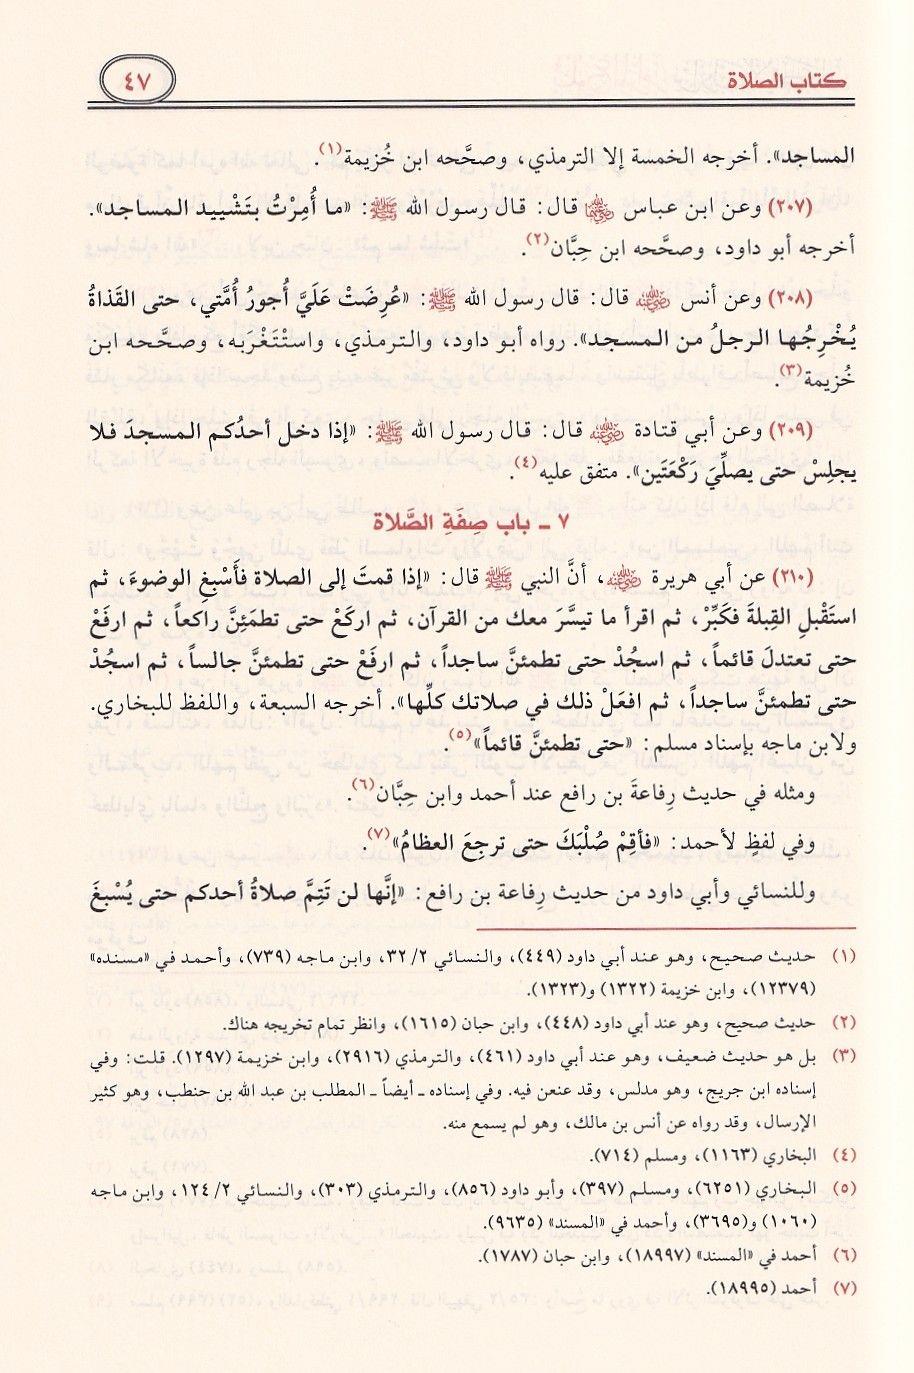 كتاب الصلاة
٤٧
المساجد». أخرجه الخمسة إلا الترمذي، وصحَّحه ابن خُزيمة(١).
(٢٠٧) وعن ابن عباس رضي الله عنهما قال: قال رسول الله ﷺ: «ما أُمِرْتُ بتَشْييد المساجد».
أخرجه أبو داود، وصحَّحه ابن حِبَّان(٢).
(٢٠٨) وعن أنس رضي الله عنه قال: قال رسول الله ﷺ: «عُرِضَتْ عَلَيَّ أُجورُ أُمَّتي، حتى القَذاةُ
يُخْرِجُها الرجلُ من المسجد». رواه أبو داود، والترمذي، واستَغْرَبه، وصحَّحه ابن
خُزيمة(٣).
(٢٠٩) وعن أبي قتادة رضي الله عنه قال: قال رسول الله ﷺ: «إذا دخل أحدُكم المسجدَ فلا
يجلِسْ حتى يصلِّيَ رَكْعَتَين». متفق عليه(٤).
٧ ـ باب صِفَةِ الصَّلاة
(٢١٠) عن أبي هريرة رضي الله عنه، أنَّ النبي ﷺ قال: «إذا قمتَ إلى الصلاة فأَسْبِغِ الوضوءَ، ثم
استَقْبلِ القِبلةَ فكَبِّرْ، ثم اقرأ ما تيسَّرَ معك من القرآن، ثم اركَعْ حتى تطمَئِنَّ راكعاً، ثم ارفَعْ
حتى تعتدلَ قائماً، ثم اسجُدْ حتى تطمئنَّ ساجداً، ثم ارفَعْ حتى تطمئنَّ جالساً، ثم اسجُدْ
حتى تطمئنَّ ساجداً، ثم افعَلْ ذلك في صلاتك كلِّها». أخرجه السبعة، واللفظ للبخاري.
ولابن ماجه بإسناد مسلم: «حتى تطمئنَّ قائماً»(٥).
ومثله في حديث رِفاعةَ بن رافع عند أحمد وابن حِبَّان(٦).
وفي لفظٍ لأحمد: «فأقِمْ صُلْبَكَ حتى ترجِعَ العظامُ»(٧).
وللنسائي وأبي داود من حديث رِفاعة بن رافع: «إنَّها لن تَتِمَّ صلاةُ أحدكم حتى يُسْبغَ
(١) حديث صحيح، وهو عند أبي داود (٤٤٩)، والنسائي ٢/ ٣٢، وابن ماجه (٧٣٩)، وأحمد في «مسنده»
(١٢٣٧٩)، وابن خزيمة (١٣٢٢) و(١٣٢٣).
(٢) حديث صحيح، وهو عند أبي داود (٤٤٨)، وابن حبان (١٦١٥)، وانظر تمام تخريجه هناك.
(٣) بل هو حديث ضعيف، وهو عند أبي داود (٤٦١)، والترمذي (٢٩١٦)، وابن خزيمة (١٢٩٧). قلت: وفي
إسناده ابن جريج، وهو مدلس، وقد عنعن فيه. وفي إسناده ـ أيضاً ـ المطلب بن عبد الله بن حنطب، وهو كثير
الإرسال، وقد رواه عن أنس بن مالك، وهو لم يسمع منه.
(٤) البخاري (١١٦٣)، ومسلم (٧١٤).
(٥) البخاري (٦٢٥١)، ومسلم (٣٩٧)، وأبو داود (٨٥٦)، والترمذي (٣٠٣)، والنسائي ٢/ ١٢٤، وابن ماجه
(١٠٦٠) و(٣٦٩٥)، وأحمد في «المسند» (٩٦٣٥).
(٦) أحمد في «المسند» (١٨٩٩٧)، وابن حبان (١٧٨٧).
(٧) أحمد (١٨٩٩٥).